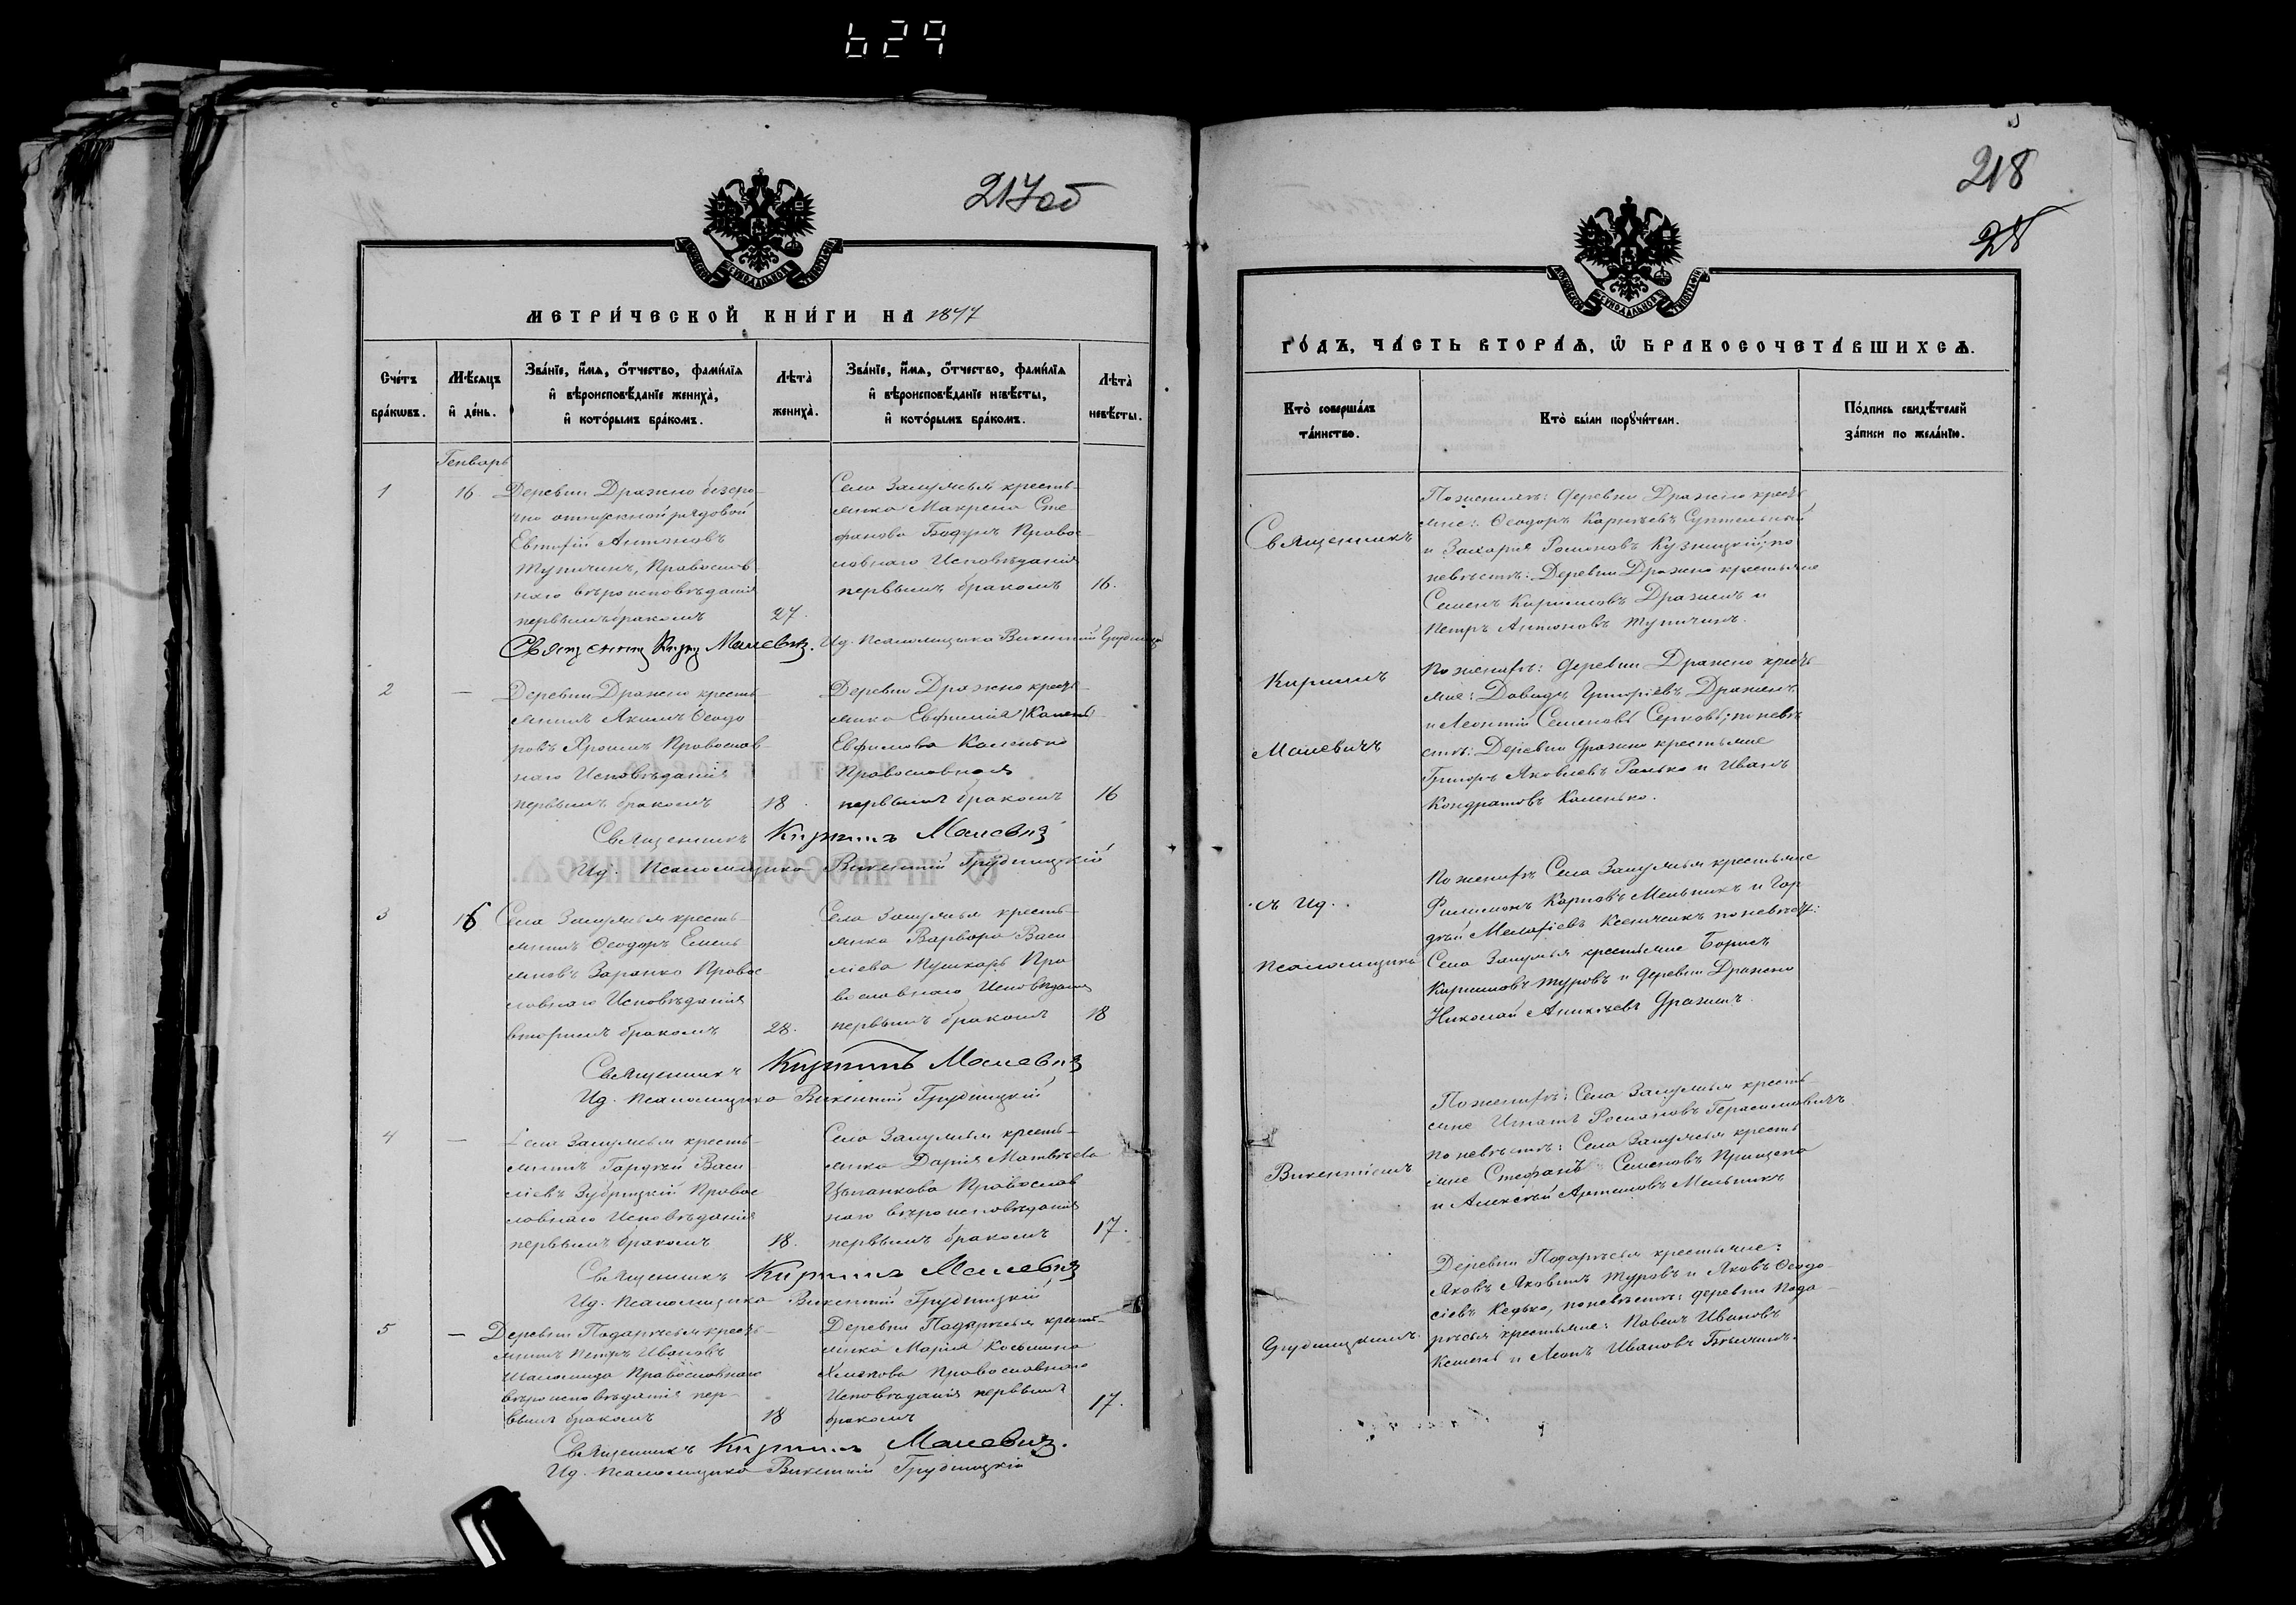 629
217об
МЕТРИЧЕСКОЙ КНИГИ НА 1877
Счетъ браковъ.
Мѣсяцъ и день.
Званіе, имя, отчество, фамилія и вѣроисповѣданіе жениха, и которымъ бракомъ.
Лѣта жениха.
Званіе, имя, отчество, фамилія и вѣроисповѣданіе невѣсты, и которымъ бракомъ.
Лѣта невѣсты.
Генварь
1
16
Деревни Дражно безсро-
чно отпускной рядовой
Евтифій Антоновъ
Тупичинъ, Православ-
наго вѣроисповѣданія
первымъ бракомъ
27.
Села Залужья кресть-
янка Макрена Сте-
фанова Бодунъ Правос-
лавнаго Исповѣданія
первымъ бракомъ
16.
Священникъ Кириллъ Малевичъ. Ид. Псаломщика Викентій Грудницкій
2
—
Деревни Дражно кресть-
янинъ Якимъ Ѳеодо
ровъ Хромъ Православ-
наго Исповѣданія
первымъ бракомъ
18.
Деревни Дражно кресть-
янка Евфимія
Евфимова Каленько
Православная
первымъ бракомъ
16
Священникъ Кириллъ Малевичъ
Ид. Псаломщика Викентій Грудницкій
3
16
Села Залужья кресть-
янинъ Ѳеодоръ Емель
яновъ Заранко Правос
лавнаго Исповѣданія
вторымъ бракомъ
28.
Села Залужья кресть-
янка Варвара Васи
ліева Пушкарь Пра
вославнаго Исповѣданія
первымъ бракомъ
18
Священникъ Кириллъ Малевичъ
Ид. Псаломщика Викентій Грудницкій
4
—
Села Залужья кресть-
янинъ Гордѣй Васи
ліевъ Зубрицкій Правос
лавнаго Исповѣданія
первымъ бракомъ
18.
Села Залужья кресть-
янка Дарія Матвѣева
Цыганкова Православ
наго вѣроисповѣданія
первымъ бракомъ
17.
Священникъ Кириллъ Малевичъ
Ид. Псаломщика Викентій Грудницкій
5
—
Деревни Подарѣсья кресть-
янинъ Петръ Ивановъ
Шаломида Православнаго
вѣроисповѣданія пер-
вымъ бракомъ
18
Деревни Подарѣсья кресть-
янка Марія Косьмина
Православнаго
Исповѣданія первымъ
бракомъ
17.
Священникъ Кириллъ Малевичъ.
Ид. Псаломщика Викентій Грудницкій
218
28
ГОДЪ, ЧАСТЬ ВТОРАЯ, Ѡ БРАКОСОЧЕТАВШИХСЯ.
Кто совершалъ таинство.
Кто были поручители.
Подпись свидѣтелей записи по желанію.
Священникъ
Кириллъ
Малевичъ
съ Ид.
Псаломщика
Викентіемъ
Грудницкимъ.
По женихѣ: деревни Дражно кресть
яне: Ѳеодоръ Карнѣевъ
и Захарія Романовъ Кузмицкій; по
невѣстѣ: Деревни Дражно крестьяне
Семенъ Кирилловъ Дражинъ и
Петръ Антоновъ Тупичинъ.
По женихѣ: деревни Дражно кресть-
яне: Давидъ Григоріевъ Дражинъ
и Леонтій Семеновъ Серковъ; по невѣ
стѣ: Деревни Дражно крестьяне
Григорій Яковлевъ Ранько и Иванъ
Кондратовъ Каленько.
По женихѣ Села Залужья крестьяне
Филимонъ Карповъ Мельникъ и Гор
дѣй Ксенчикъ по невѣстѣ:
Села Залужья крестьяне Борисъ
Кирилловъ Туровъ и деревни Дражно
Николай Аникіевъ Дражинъ.
По женихѣ: Села Залужья кресть
яне Игнатъ Романовъ Герасимовичъ
по невѣстѣ: Села Залужья кресть
яне Стефанъ Семеновъ Прищепа
и Алексѣй Артемовъ Мельникъ
Деревни Подарѣсья крестьяне:
Яковъ Яковлевъ Туровъ и Яковъ Ѳеодо
сіевъ Кедько, по невѣстѣ: деревни Пода-
рѣсья крестьяне: Павелъ Ивановъ
и Леонъ Ивановъ